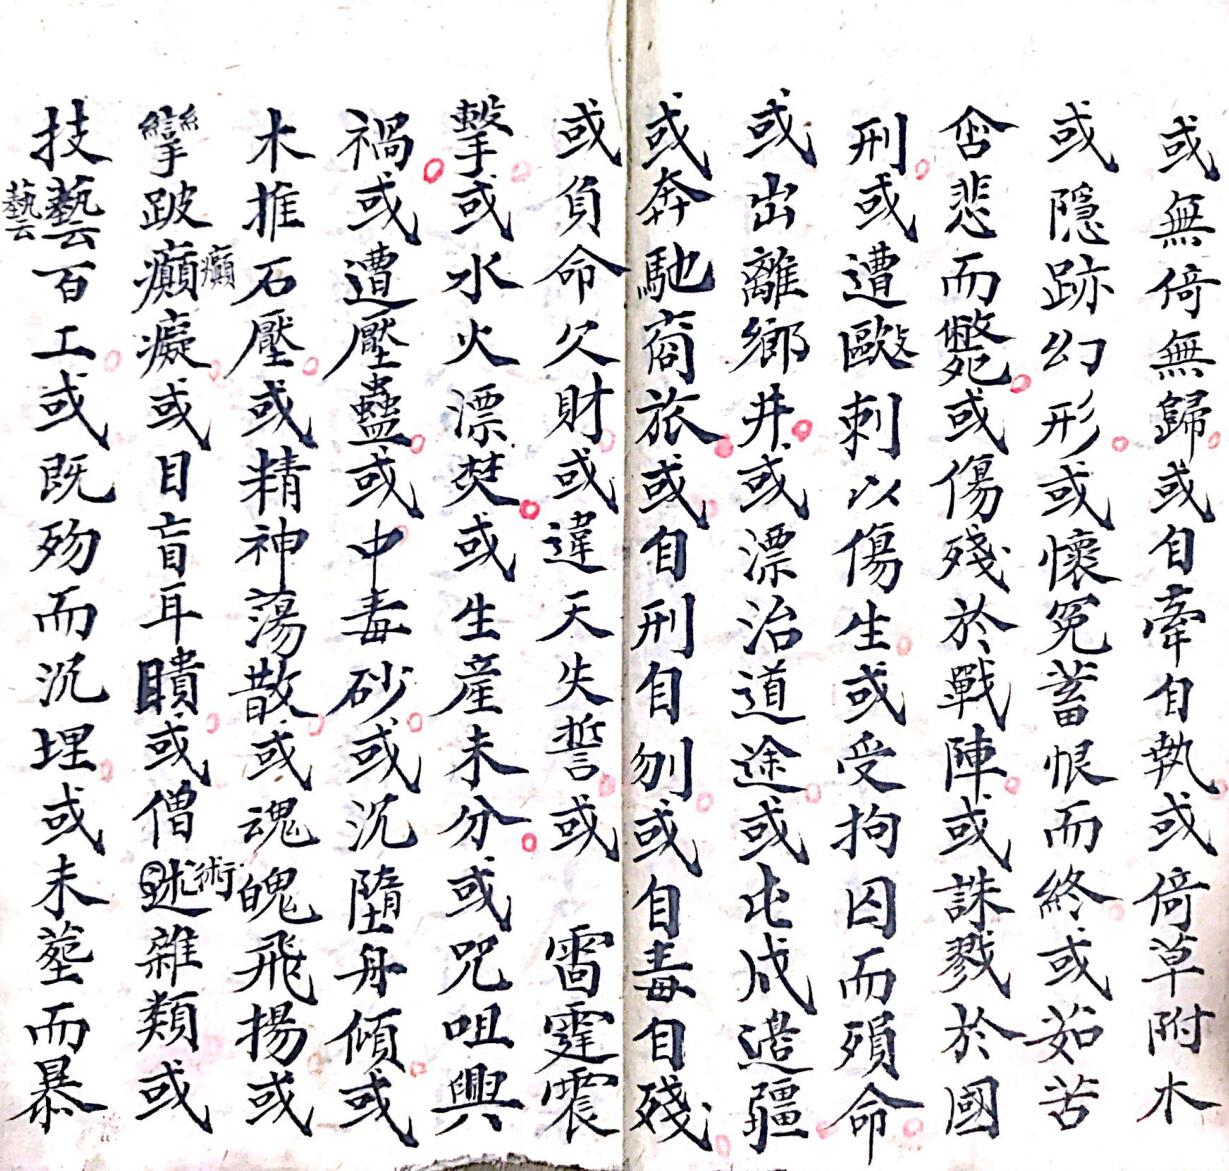 或無倚無歸或自牽自執或倚草附木
或隱跡幻形或懷冤蓄恨而終或茹苦
含悲而斃或傷殘於戰陣或誅戮於國
刑或遭毆刺以傷生或受拘囚而殞命
或出離鄉井或漂治道途或屯戍邊疆
或奔馳商旅或自刑自刎或自毒自殘
或負命欠財或違天失誓或 雷霆震
擊或水火漂焚或生產未分或咒咀興
禍或遭壓蠱或中毒砂或沉墮舟傾或
木推石壓或精神蕩散或魂魄飛揚或
攣跛癲癡或目盲耳瞶或僧述雜類或
癲
術
技藝百工或既歿而沉埋或未塟而暴
藝